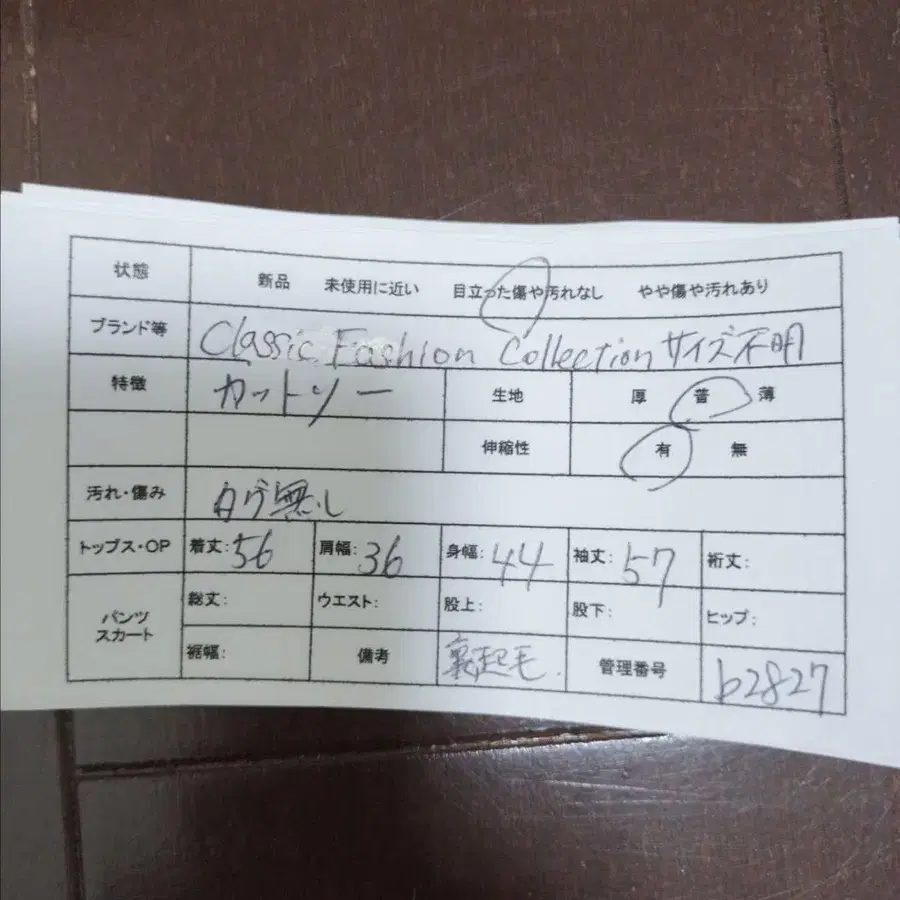 状態 新品 未使用に近い 目立った傷や汚れなし やや傷や汚れあり
ブランド等 Classic Fashion Collection サイズ不明
特徴 カットソー 生地 厚 普 薄
伸縮性 有 無
汚れ・傷み タグ無し
トップス・OP 着丈:56 肩幅:36 身幅:44 袖丈:57 裄丈:
パンツ スカート 総丈: ウエスト: 股上: 股下: ヒップ:
裾幅: 備考 裏起毛. 管理番号 b2827